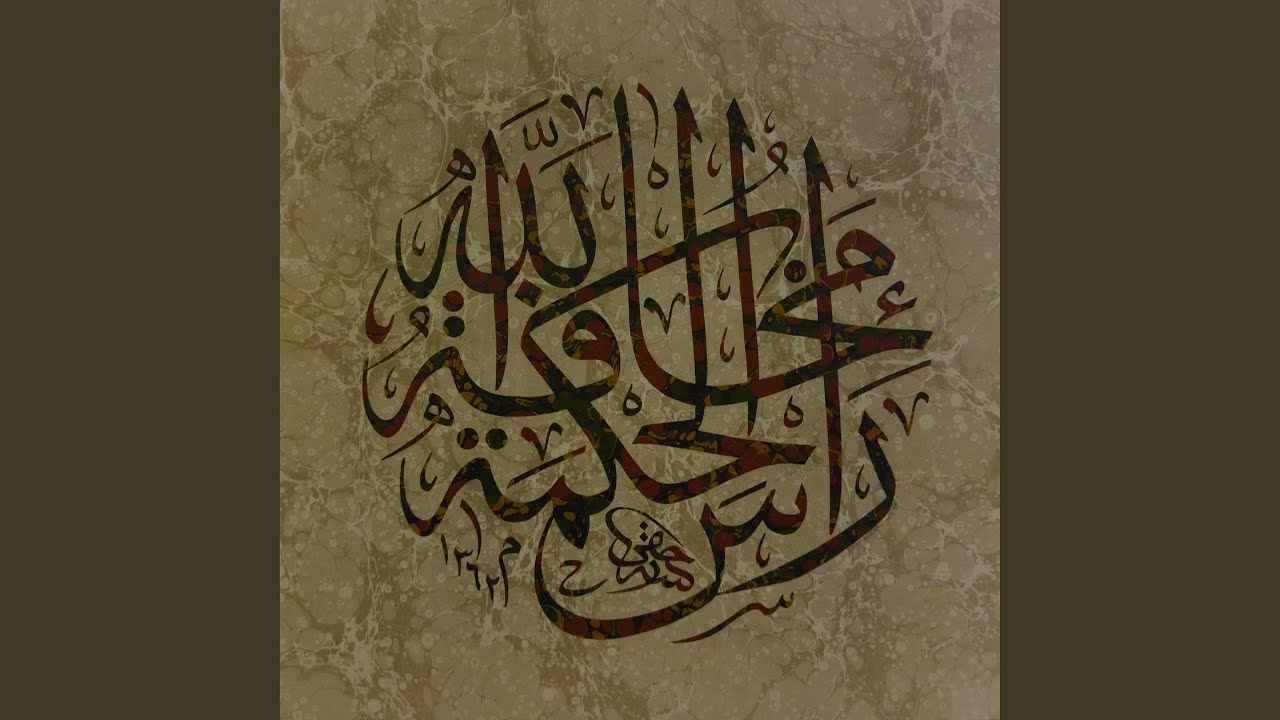 رَأْسُ الْحِكْمَةِ مَخَافَةُ اللَّهِ
م ١٣٦٢